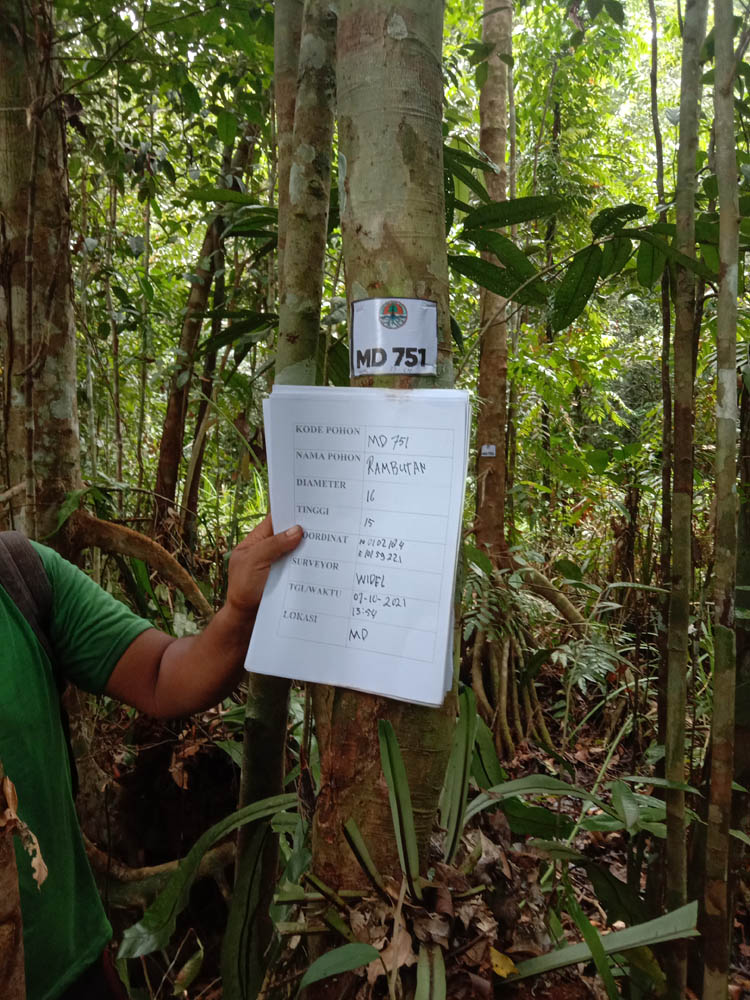 MD 751
KODE POHON MD 751
NAMA POHON RAMBUTAN
DIAMETER 16
TINGGI 15
COORDINAT N 01 02 10.4
E 101 59 221
SURVEYOR WIDEL
TGL/WAKTU 07-10-2021
13:54
LOKASI MD